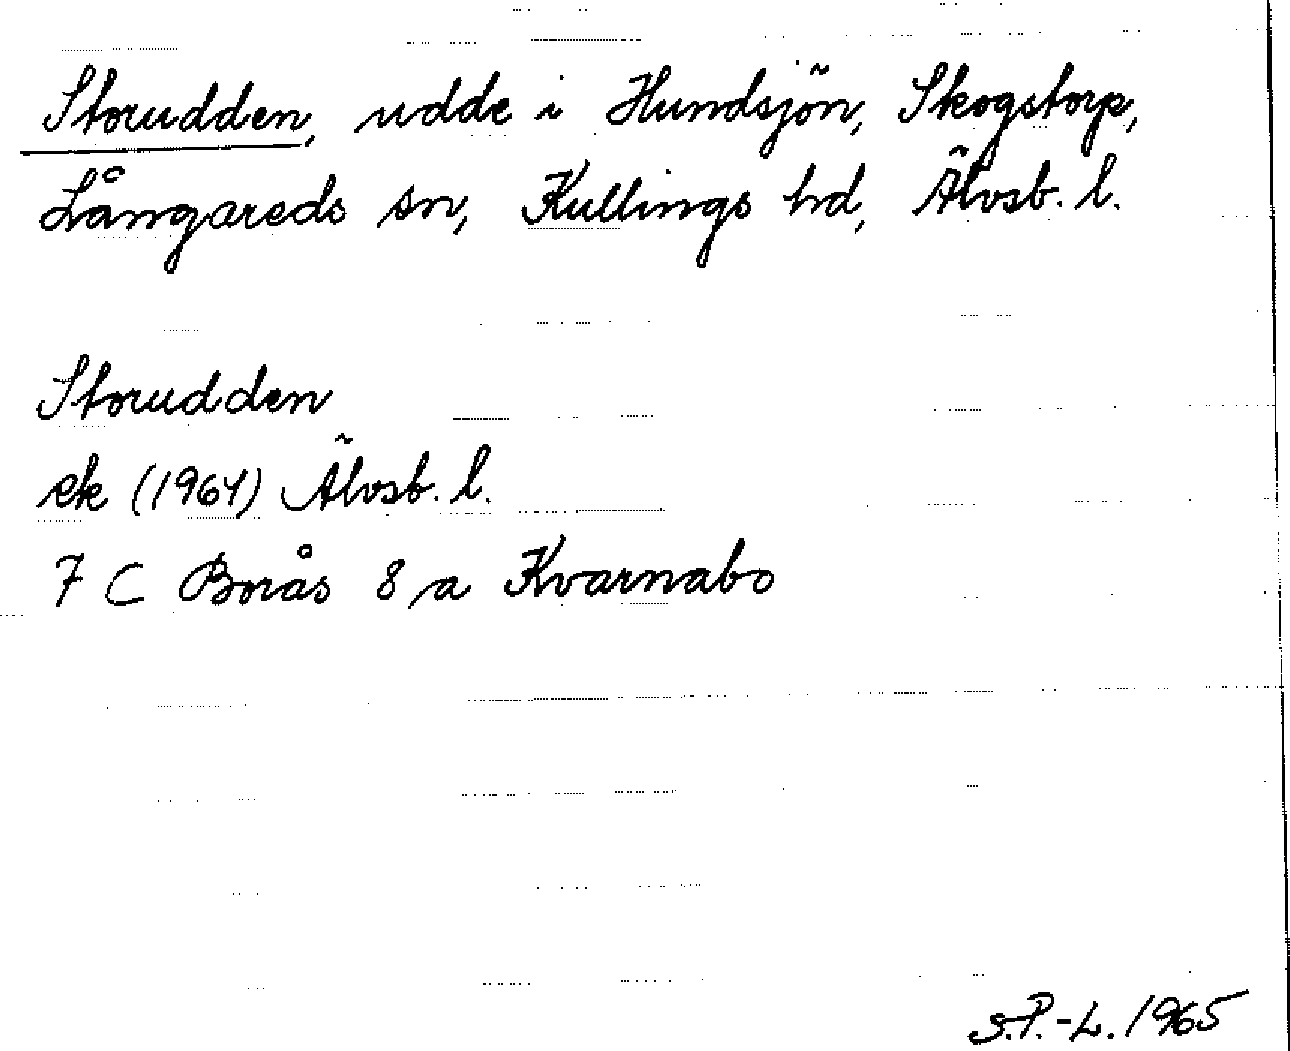 Storudden, udde i Hundsjön, Skogstorp,
Långareds sn, Kullings hd, Älvsb. l.
Storudden
ek (1964) Älvsb. l.
7 C Borås 8 a Kvarnabo
S.P.-L. 1965